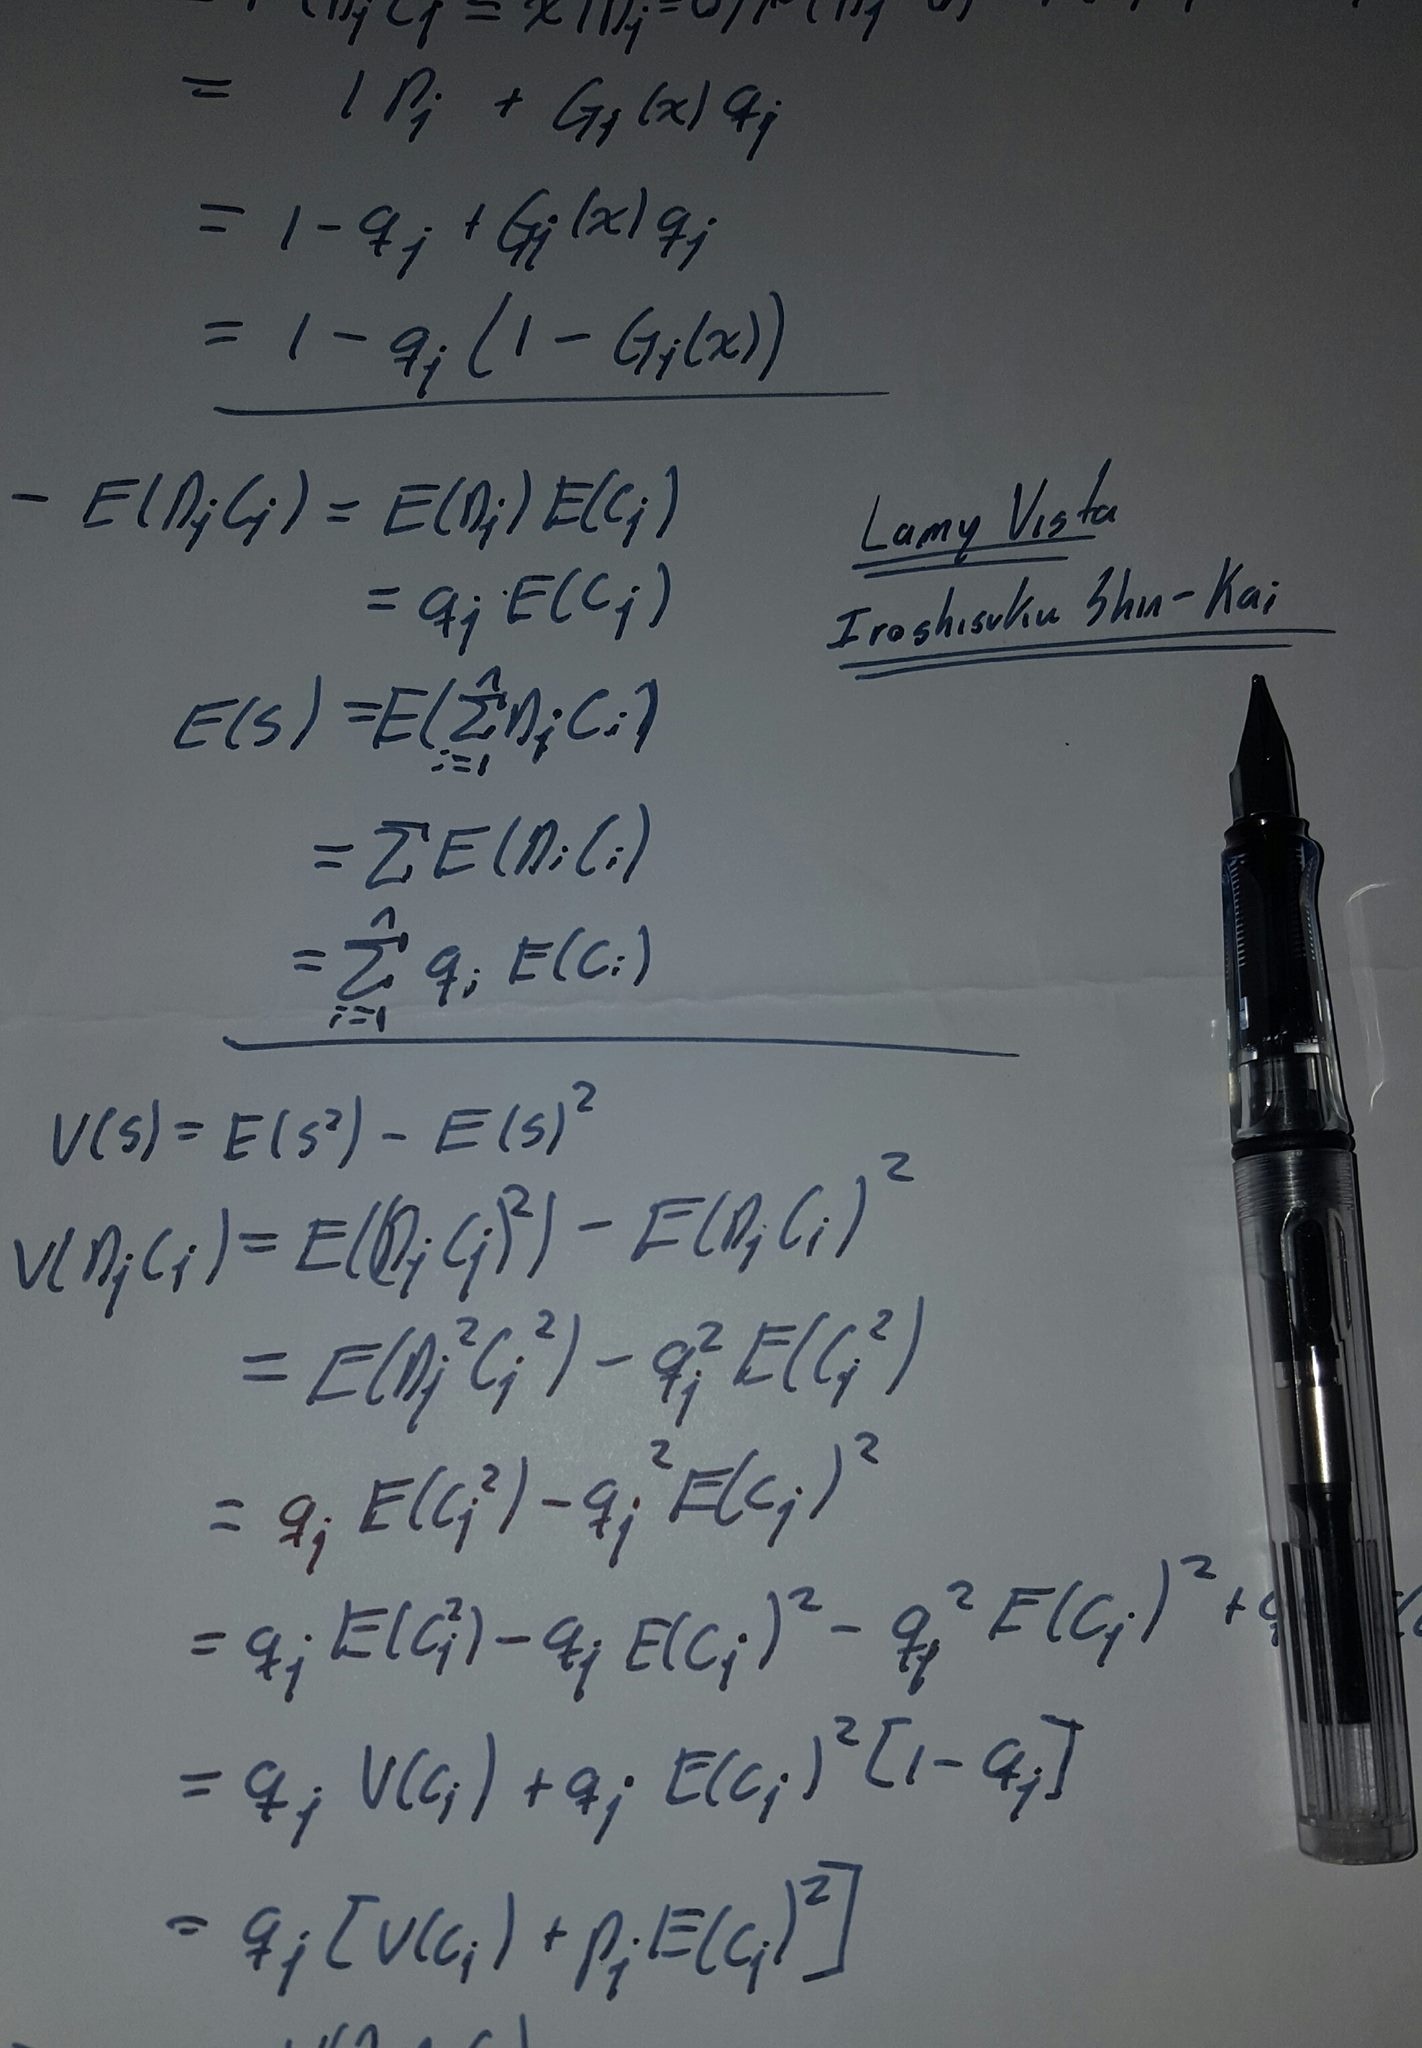 = 1 p_j + G_j(x) q_j
= 1 - q_j + G_j(x) q_j
= 1 - q_j (1 - G_j(x))
- E(n_j C_j) = E(n_j) E(C_j)
= q_j E(C_j)
Lamy Vista
Iroshisuku Shin-Kai
E(S) = E(∑_{i=1}^n n_j C_i)
= ∑ E(n_i C_i)
= ∑_{i=1}^n q_i E(C_i)
V(S) = E(S²) - E(S)²
V(n_j C_j) = E((n_j C_j)²) - E(n_j C_j)²
= E(n_j² C_j²) - q_j² E(C_j²)
= q_j E(C_j²) - q_j² E(C_j)²
= q_j E(C_j²) - q_j E(C_j)² - q_j² E(C_j)² +
= q_j V(C_j) + q_j E(C_j)² [1 - q_j]
= q_j [V(C_j) + p_j E(C_j)²]